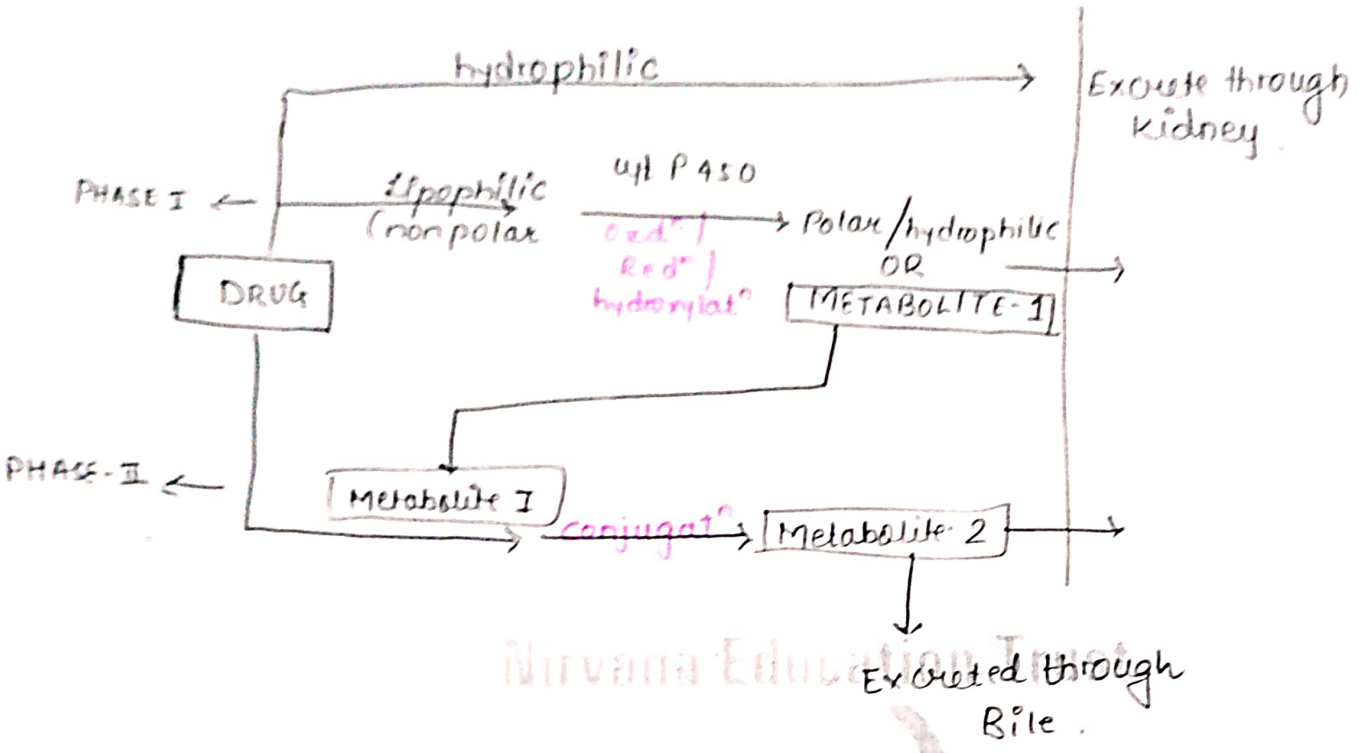 hydrophilic
Excrete through
Kidney.
PHASE I
Lipophilic
(nonpolar
cyt P450
Oxdⁿ /
Redⁿ /
hydroxylatⁿ
Polar/hydrophilic
OR
METABOLITE-1
DRUG
PHASE-II
Metabolite I
conjugatⁿ
Metabolite-2
Nirvana Education Trust
Excreted through
Bile.